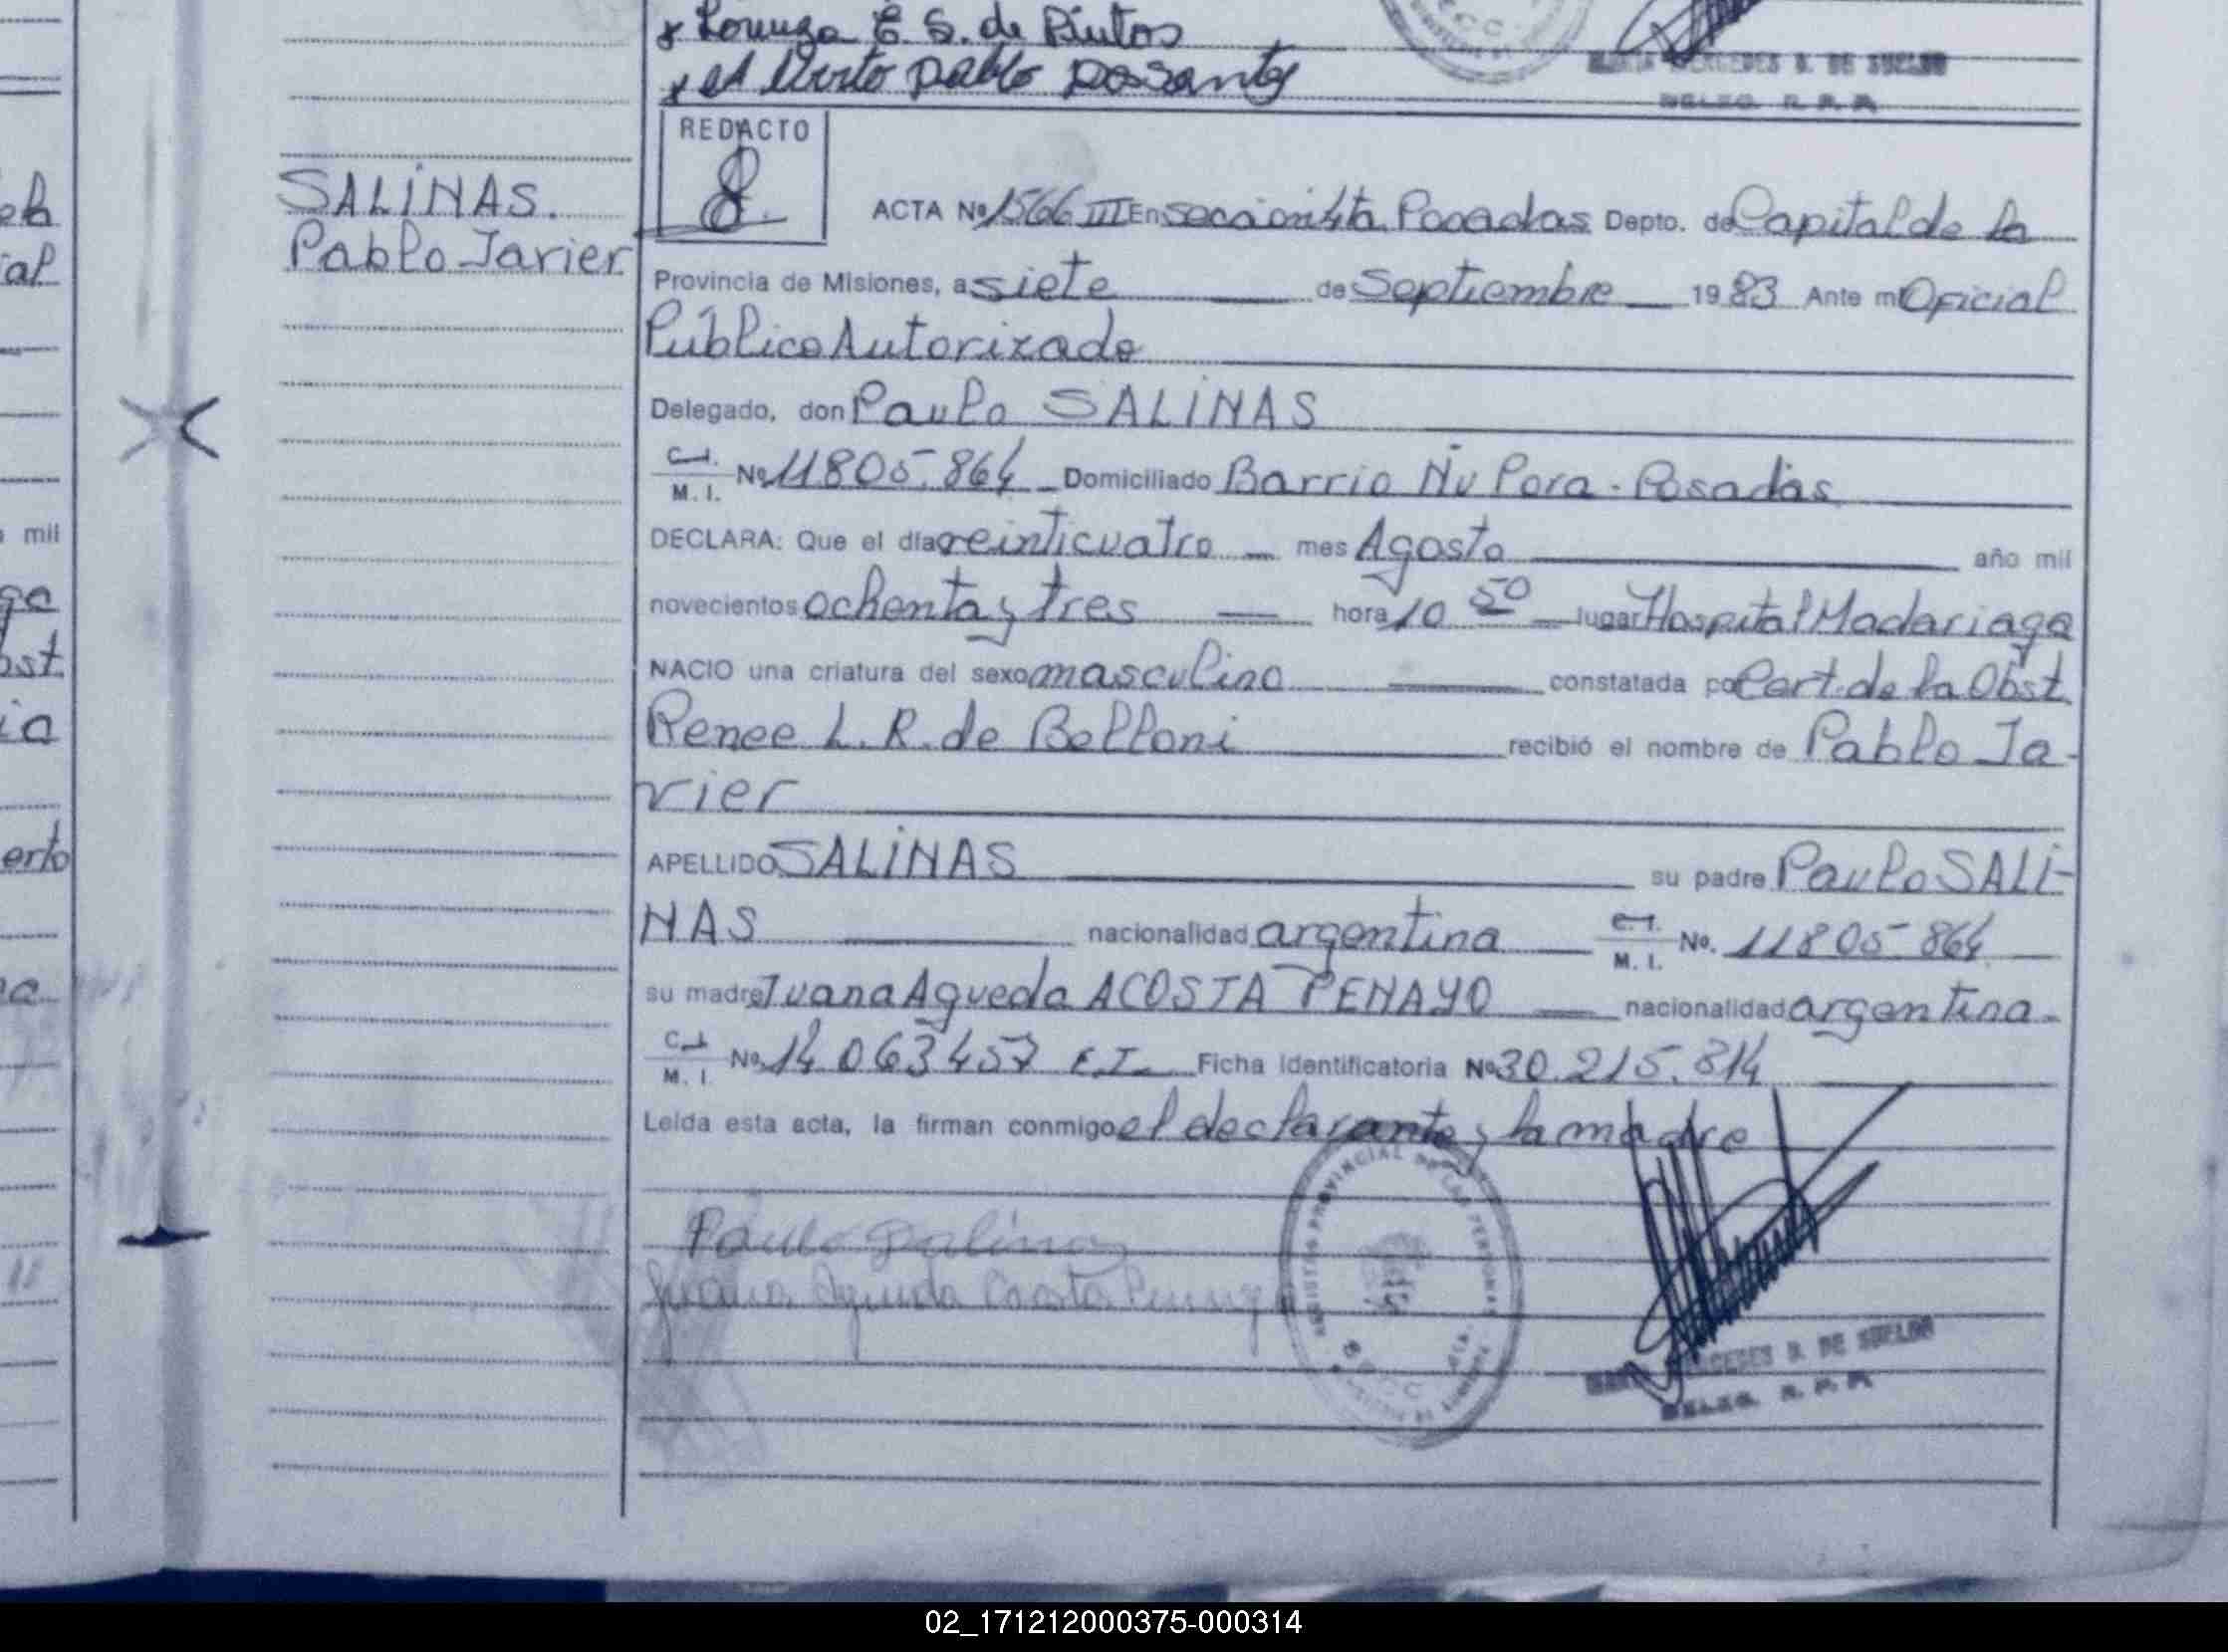 Lorenza E. S. de Pintos
REDACTO
SALINAS.
Pablo Javier
ACTA Nº 1566 III En sección 4ta. Posadas Depto. de Capital de la
Provincia de Misiones, a siete de Septiembre 1983 Ante mí Oficial
Público Autorizado
Delegado, don Paulo SALINAS
C.I.
M. I.
Nº 11805.864 Domiciliado Barrio Ñu Pora - Posadas
DECLARA: Que el día veinticuatro mes Agosto año mil
novecientos ochenta y tres hora 10 50 lugar Hospital Madariaga
NACIO una criatura del sexo masculino constatada por Cert. de la Obst.
Renee L. R. de Belloni recibió el nombre de Pablo Ja-
vier
APELLIDO SALINAS su padre Paulo SALI-
NAS nacionalidad argentina C.I. M. I. No. 11805.864
su madre Juana Agueda ACOSTA PENAYO nacionalidad argentina.
C.I.
M. I.
No. 14.063457 Ficha Identificatoria Nº 30.215.814
Leída esta acta, la firman conmigo el declarante y la madre
Paulo Salinas
Juana Agueda Acosta Penayo
MERCEDES B. DE SUELDO
DELEG. R. P. P.
02_171212000375-000314